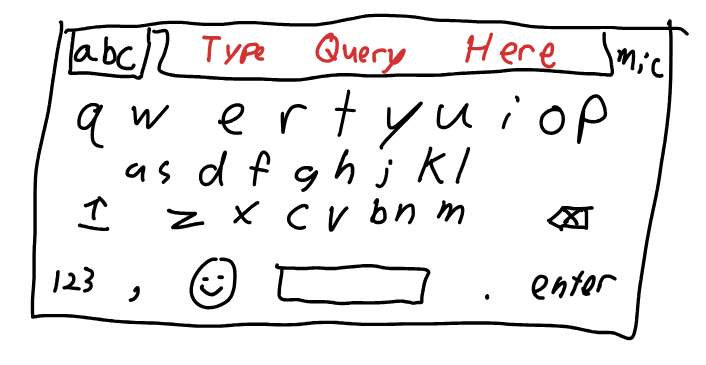 abc Type Query Here mic
q w e r t y u i o p
a s d f g h j k l
z x c v b n m
123 , . enter